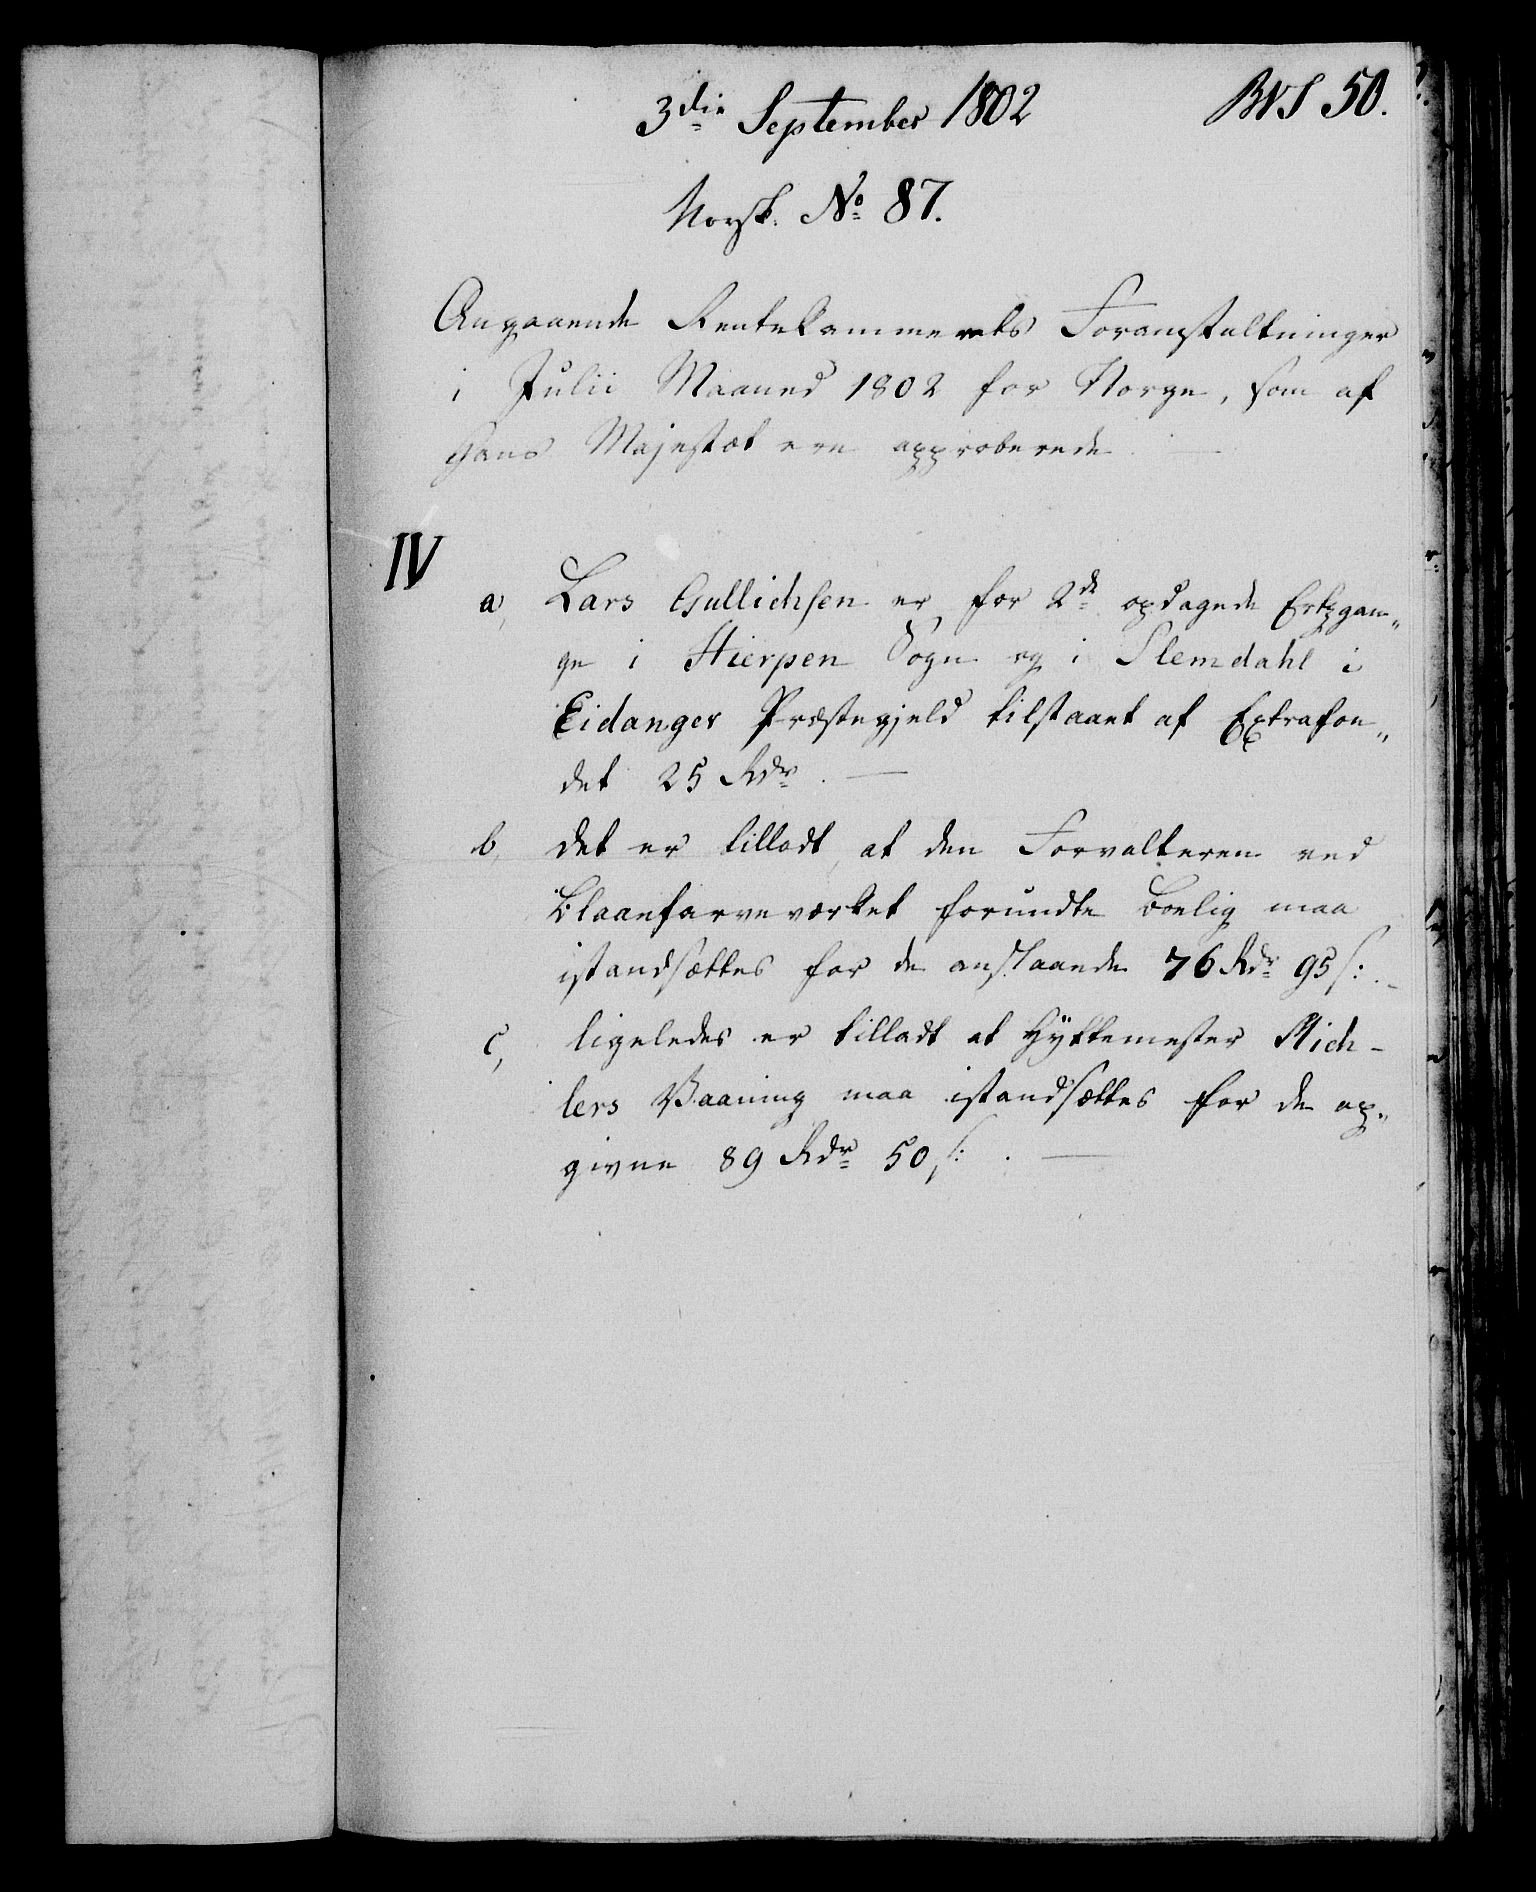 3die September 1802
BVS 50.
Norsk. No 87.
Angaaende Rentekammerets Foranstaltninger
i Julii Maaned 1802 for Norge, som af
Hans Majestæt ere approberede.
IV
a, Lars Gullichsen er for 2de opdagede Ertzgan„
ge i Hierpen Sogn og i Slemdahl i
Eidanger Præstegjeld tilstaaet af Extrafon„
det 25 Rdr. —
b, det er tilladt at den Forvalteren ved
Blaaefarveværket forundte Boelig maa
istandsættes for de anslaaede 76 Rdr 95 s:. –
c, ligeledes er tilladt at Hyttemester Mich-
lers Vaaning maa istandsættes for de op„
givne 89 Rdr 50 s: . —